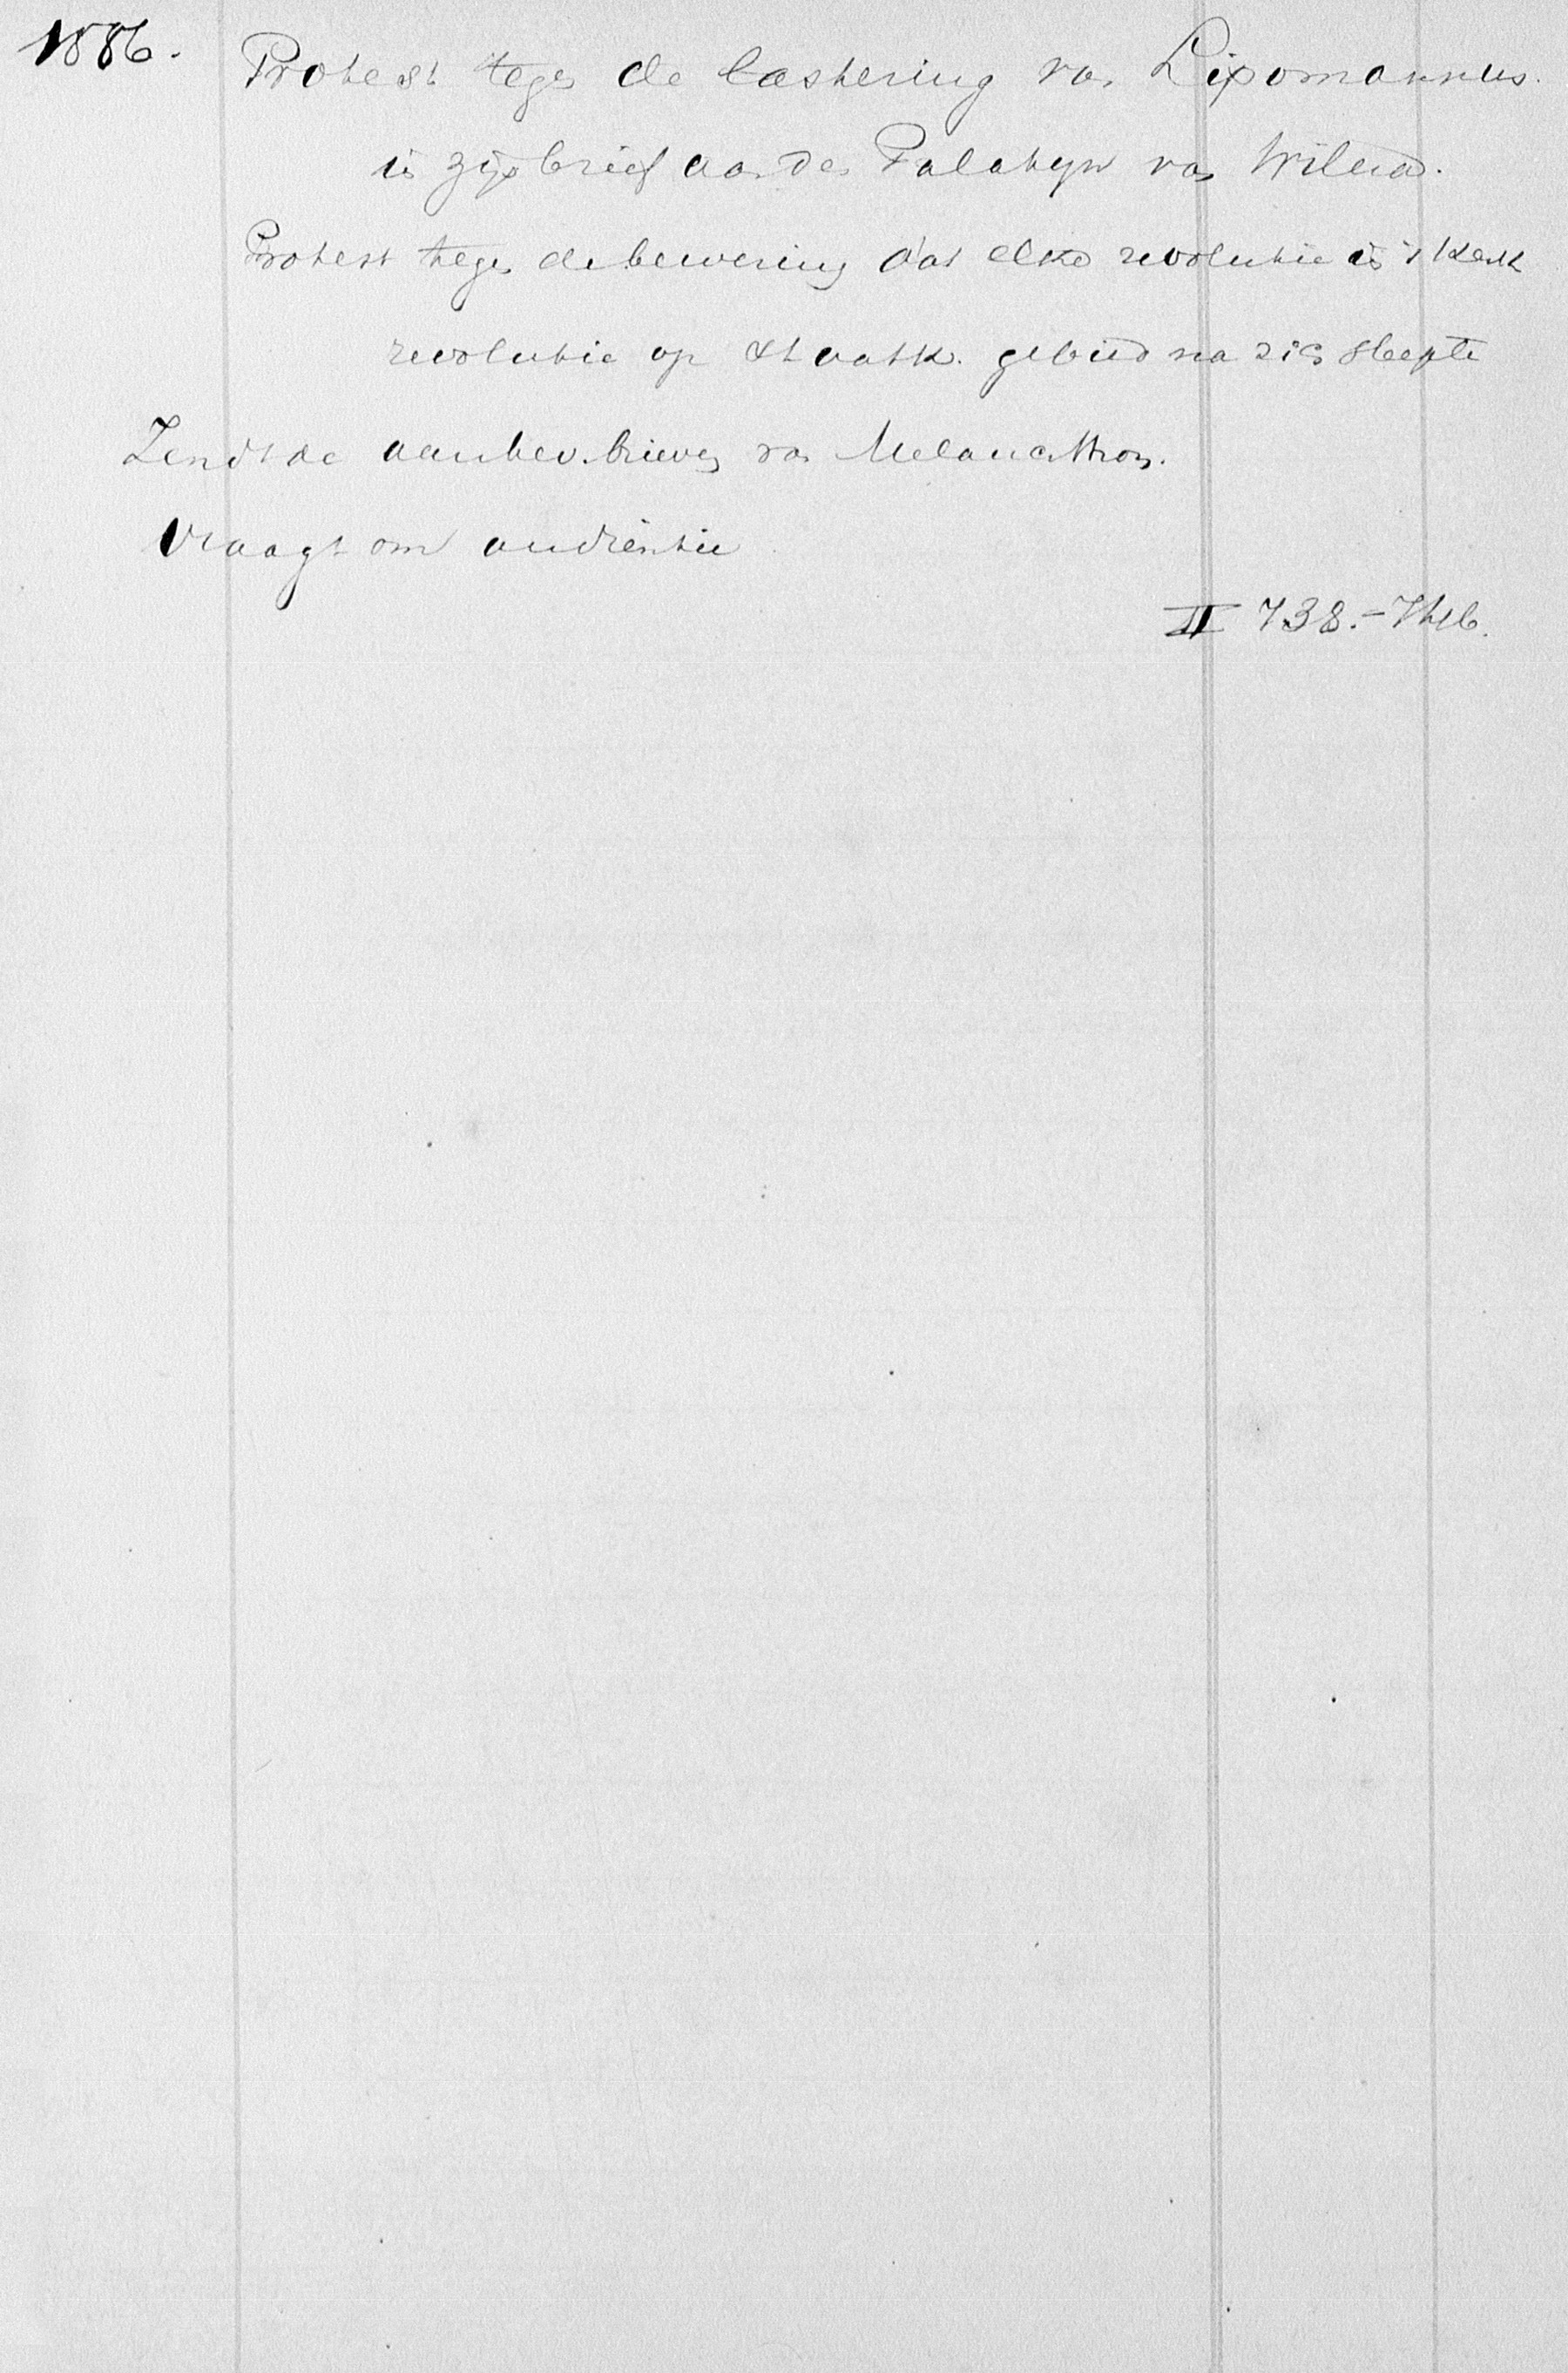 1886.
Protest tegen de lastering van Lipomannus.
in zijn brief aan den Palatyn van Wilna.
Protest tegen de bewering dat elke revolutie in 's Kerk
revolutie op staatk. gebied na zich sleepte
Zendt de aanbev. brieven van Melancthon.
Vraagt om audientie
II 738.-